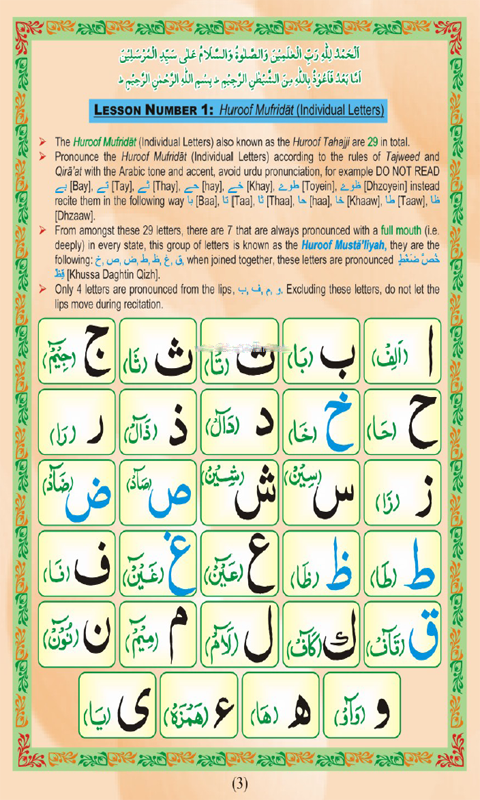 اَلْحَمْدُ لِلّٰهِ رَبِّ الْعٰلَمِيْنَ وَالصَّلٰوةُ وَالسَّلَامُ عَلٰى سَيِّدِ الْمُرْسَلِيْنَ
اَمَّا بَعْدُ فَاَعُوْذُ بِاللّٰهِ مِنَ الشَّيْطٰنِ الرَّجِيْمِ ؕ بِسْمِ اللّٰهِ الرَّحْمٰنِ الرَّحِيْمِ ؕ
LESSON NUMBER 1: Huroof Mufridāt (Individual Letters)
➤ The Huroof Mufridāt (Individual Letters) also known as the Huroof Tahajji are 29 in total.
➤ Pronounce the Huroof Mufridāt (Individual Letters) according to the rules of Tajweed and
Qirā'at with the Arabic tone and accent, avoid urdu pronunciation, for example DO NOT READ
بے [Bay], تے [Tay], ثے [Thay], حے [hay], خے [Khay], طوے [Toyein], ظوے [Dhzoyein] instead
recite them in the following way با [Baa], تا [Taa], ثا [Thaa], حا [haa], خا [Khaaw], طا [Taaw], ظا
[Dhzaaw].
➤ From amongst these 29 letters, there are 7 that are always pronounced with a full mouth (i.e.
deeply) in every state, this group of letters is known as the Huroof Mustá'liyah, they are the
following: خ, ص, ض, ط, ظ, غ, ق, when joined together, these letters are pronounced خُصَّ ضَغْطٍ
قِظْ [Khussa Daghtin Qizh].
➤ Only 4 letters are pronounced from the lips, ب, ف, م, و. Excluding these letters, do not let the
lips move during recitation.
ا (اَلِفْ) ب (بَا) ت (تَا) ث (ثَا) ج (جِيْمْ)
ح (حَا) خ (خَا) د (دَالْ) ذ (ذَالْ) ر (رَا)
ز (زَا) س (سِيْنْ) ش (شِيْنْ) ص (صَادْ) ض (ضَادْ)
ط (طَا) ظ (ظَا) ع (عَيْنْ) غ (غَيْنْ) ف (فَا)
ق (قَافْ) ك (كَافْ) ل (لَامْ) م (مِيْمْ) ن (نُوْنْ)
و (وَاوْ) ه (هَا) ء (هَمْزَهْ) ى (يَا)
(3)